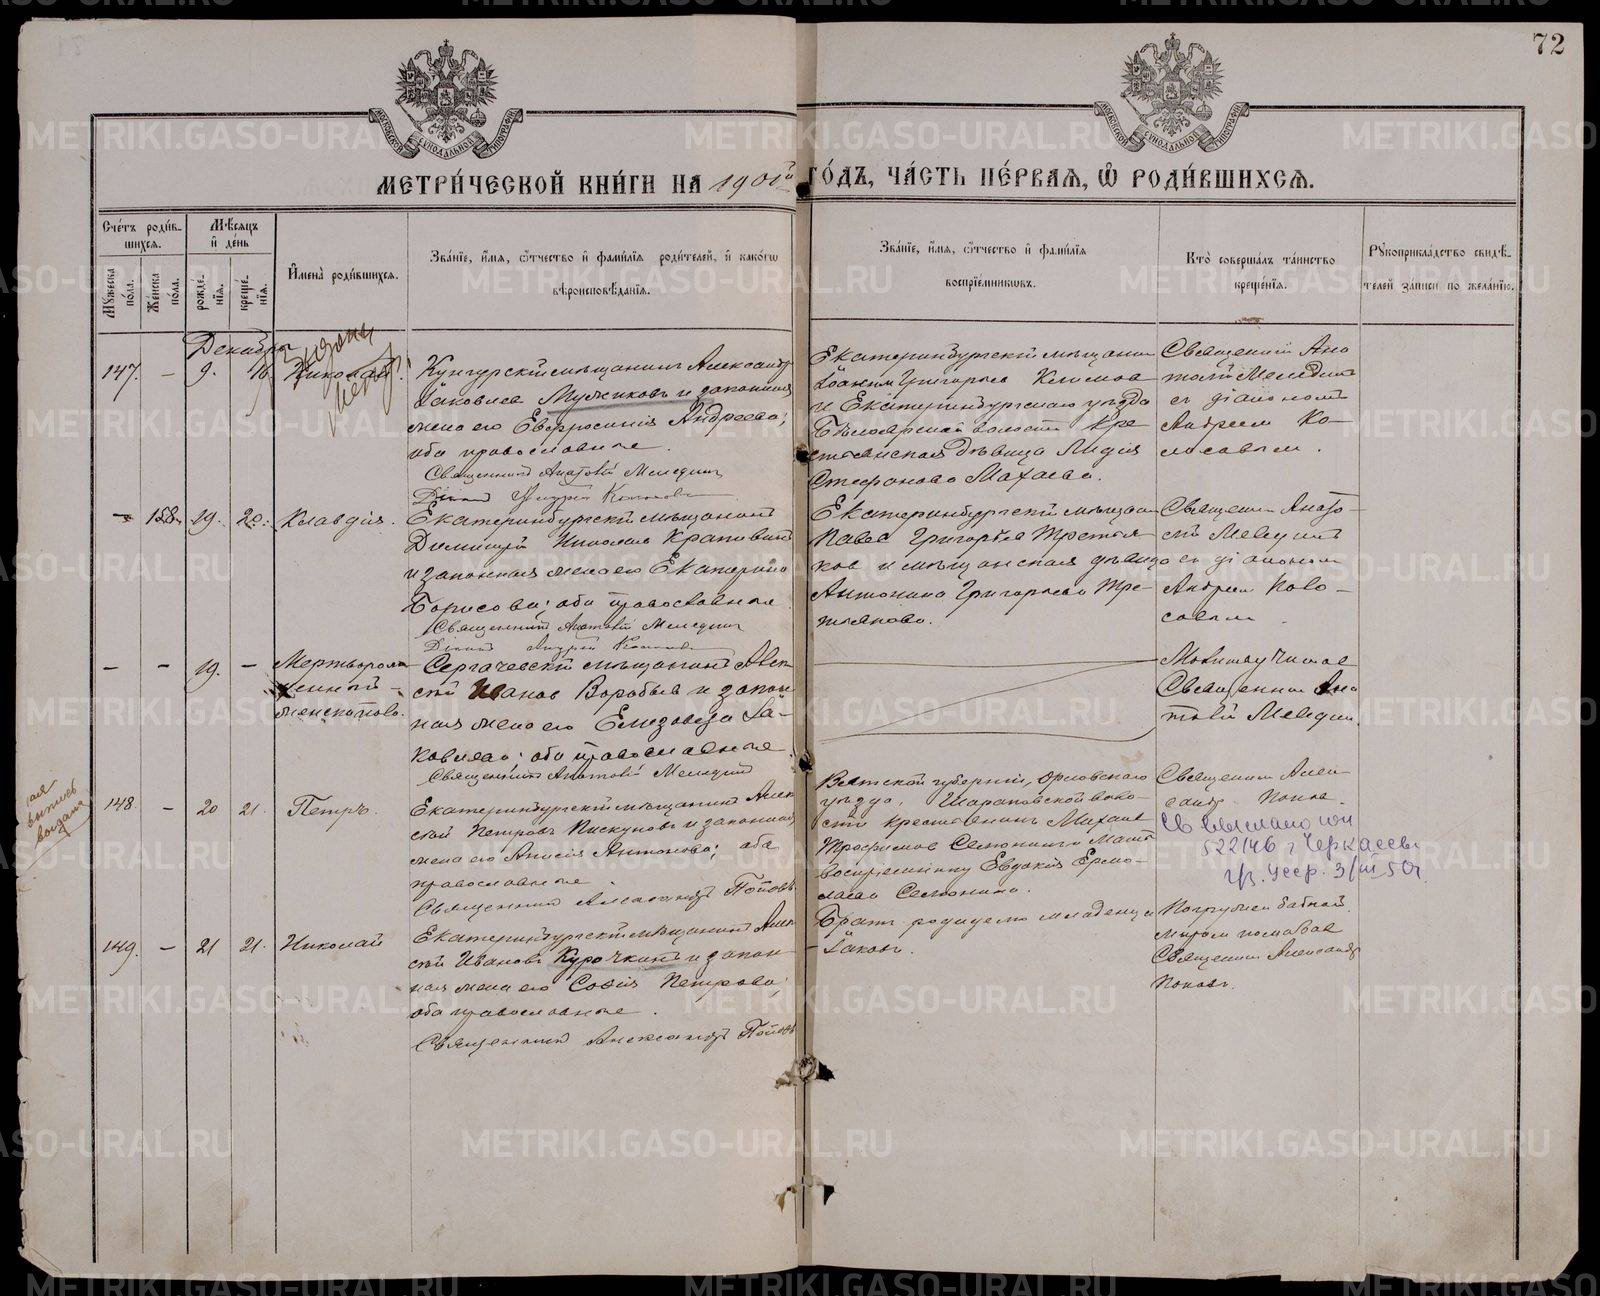 72
МЕТРИ́ЧЕСКОЙ КНИ́ГИ НА 1901й ГО́ДЪ, ЧА́СТЬ ПЕ́РВАЯ, Ѡ РОДИ́ВШИХСЯ.
Сче́тъ роди́в-
шихся.
Му́жеска по́ла.
Же́нска по́ла.
Мѣ́сяцъ
и де́нь
рожде́-
нія.
креще́-
нія.
Имена̀ роди́вшихся.
Зва́ніе, и́мя, о́тчество и фами́лія роди́телей, и како́гѡ
вѣроисповѣ́данія.
Зва́ніе, и́мя, о́тчество и фами́лія
воспріе́мниковъ.
Кто̀ соверша́лъ та́инство
креще́нія.
Рꙋкоприкла́дство свидѣ́-
телей за́писи по жела́нію.
Декабрь
147. – 9. 16. Николай.
Кунгурскій мѣщанинъ Александръ
Іаковлев Мульниковъ и законная
жена его Евфросинія Андреева;
оба православные.
Священникъ Анатолій Меледин
Діаконъ Андрей
Екатеринбургскій мѣщанин
Іоаким Григорьев Климов
и Екатеринбургскаго уѣзда
Бѣлоярской волости кре
стьянская дѣвица Лидія
Стефанова Махаева.
Священник Ана
толій Меледин
с діаконом
Андреем Ко-
косовым.
– 158. 19. 20. Клавдія.
Екатеринбургскій мѣщанинъ
Димитрій Николаев
и законная жена его Екатерина
Борисова; оба православные
Священникъ Анатолій Меледин
Діаконъ Андрей
Екатеринбургскій мѣщан
Павел Григорьев Третья
ков и мѣщанская дѣвица
Антонина Григорьева Тре-
тьякова.
Священник Анато-
лій Меледин
с діаконом
Андреем Коко-
совым.
– – 19. – Мертворож
денный
женск. пола.
Сергачевскій мѣщанинъ Алек
сѣй Иванов Воробьев и закон
ная жена его Елизавета Іа-
ковлева; оба православные
Священникъ Анатолій Меледин
Молитву читал
Священник Ана
толій Меледин.
выпись
выдана
148. – 20 21. Петръ.
Екатеринбургскій мѣщанинъ Алек
сѣй Петровъ Пискуновъ и законная
жена его Анисія Антонова; оба
православные
Священникъ Александръ Поповъ
Вятской губерніи, Орловскаго
уѣзда, Шараповской воло-
сти крестьянинъ Михаил
Трофимов
Евдокія Ермо-
лаева
Священник Алек-
сандр Попов.
Св выслано юн
522146 г Черкассы
3/III 50г.
149. – 21 21. Николай
Екатеринбургскій мѣщанинъ Алек
сѣй Ивановъ Курочкинъ и закон-
ная жена его Софія Петрова;
оба православные.
Священникъ Александръ Поповъ
Братъ родидемо младенца
– Іаковъ.
Погружен бабкой,
миром помазал
Священник Александръ
Поповъ.
METRIKI.GASO-URAL.RU